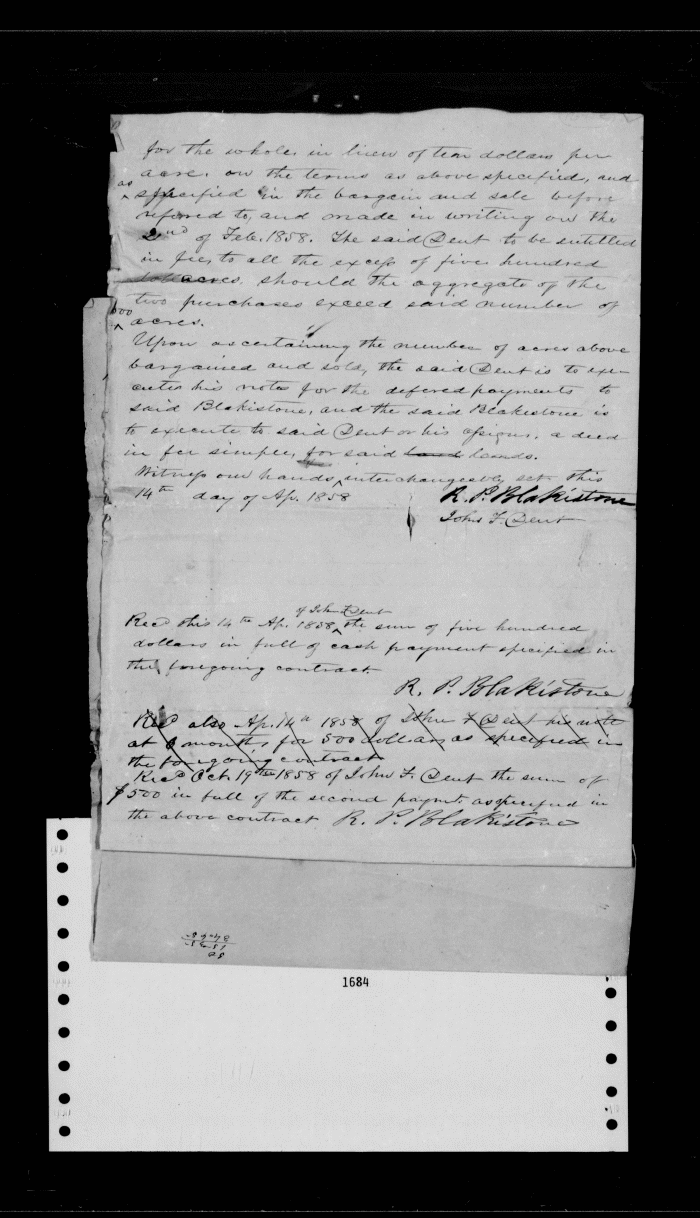 for the whole, in lieu of ten dollars per
acre, on the terms as above specified, and
as specified in the bargain and sale before
refered to, and made in writing on the
2nd of Feb. 1858. The said Dent to be entitled
in fee, to all the excess of five hundred
acres should the aggregate of the
two purchases exceed said number of
500 acres.
Upon ascertaining the number of acres above
bargained and sold, the said Dent is to exe-
cute his notes for the defered payments to
said Blakistone, and the said Blakistone is
to execute to said Dent or his assigns, a deed
in fee simple, for said land lands.
Witness our hands, interchangeably set, this
14th day of Ap. 1858
R. P. Blakistone
John F. Dent
of John F Dent
Recd this 14th Ap. 1858, the sum of five hundred
dollars in full of cash payment specified in
the foregoing contract.
R. P. Blakistone
Recd also Ap. 14th 1858 of John F Dent his note
at 6 months, for 500 dollars as specified in
the foregoing contract
Recd Oct. 19th 1858 of John F. Dent the sum of
$500 in full of the second paymt as specified in
the above contract R. P. Blakistone
1684